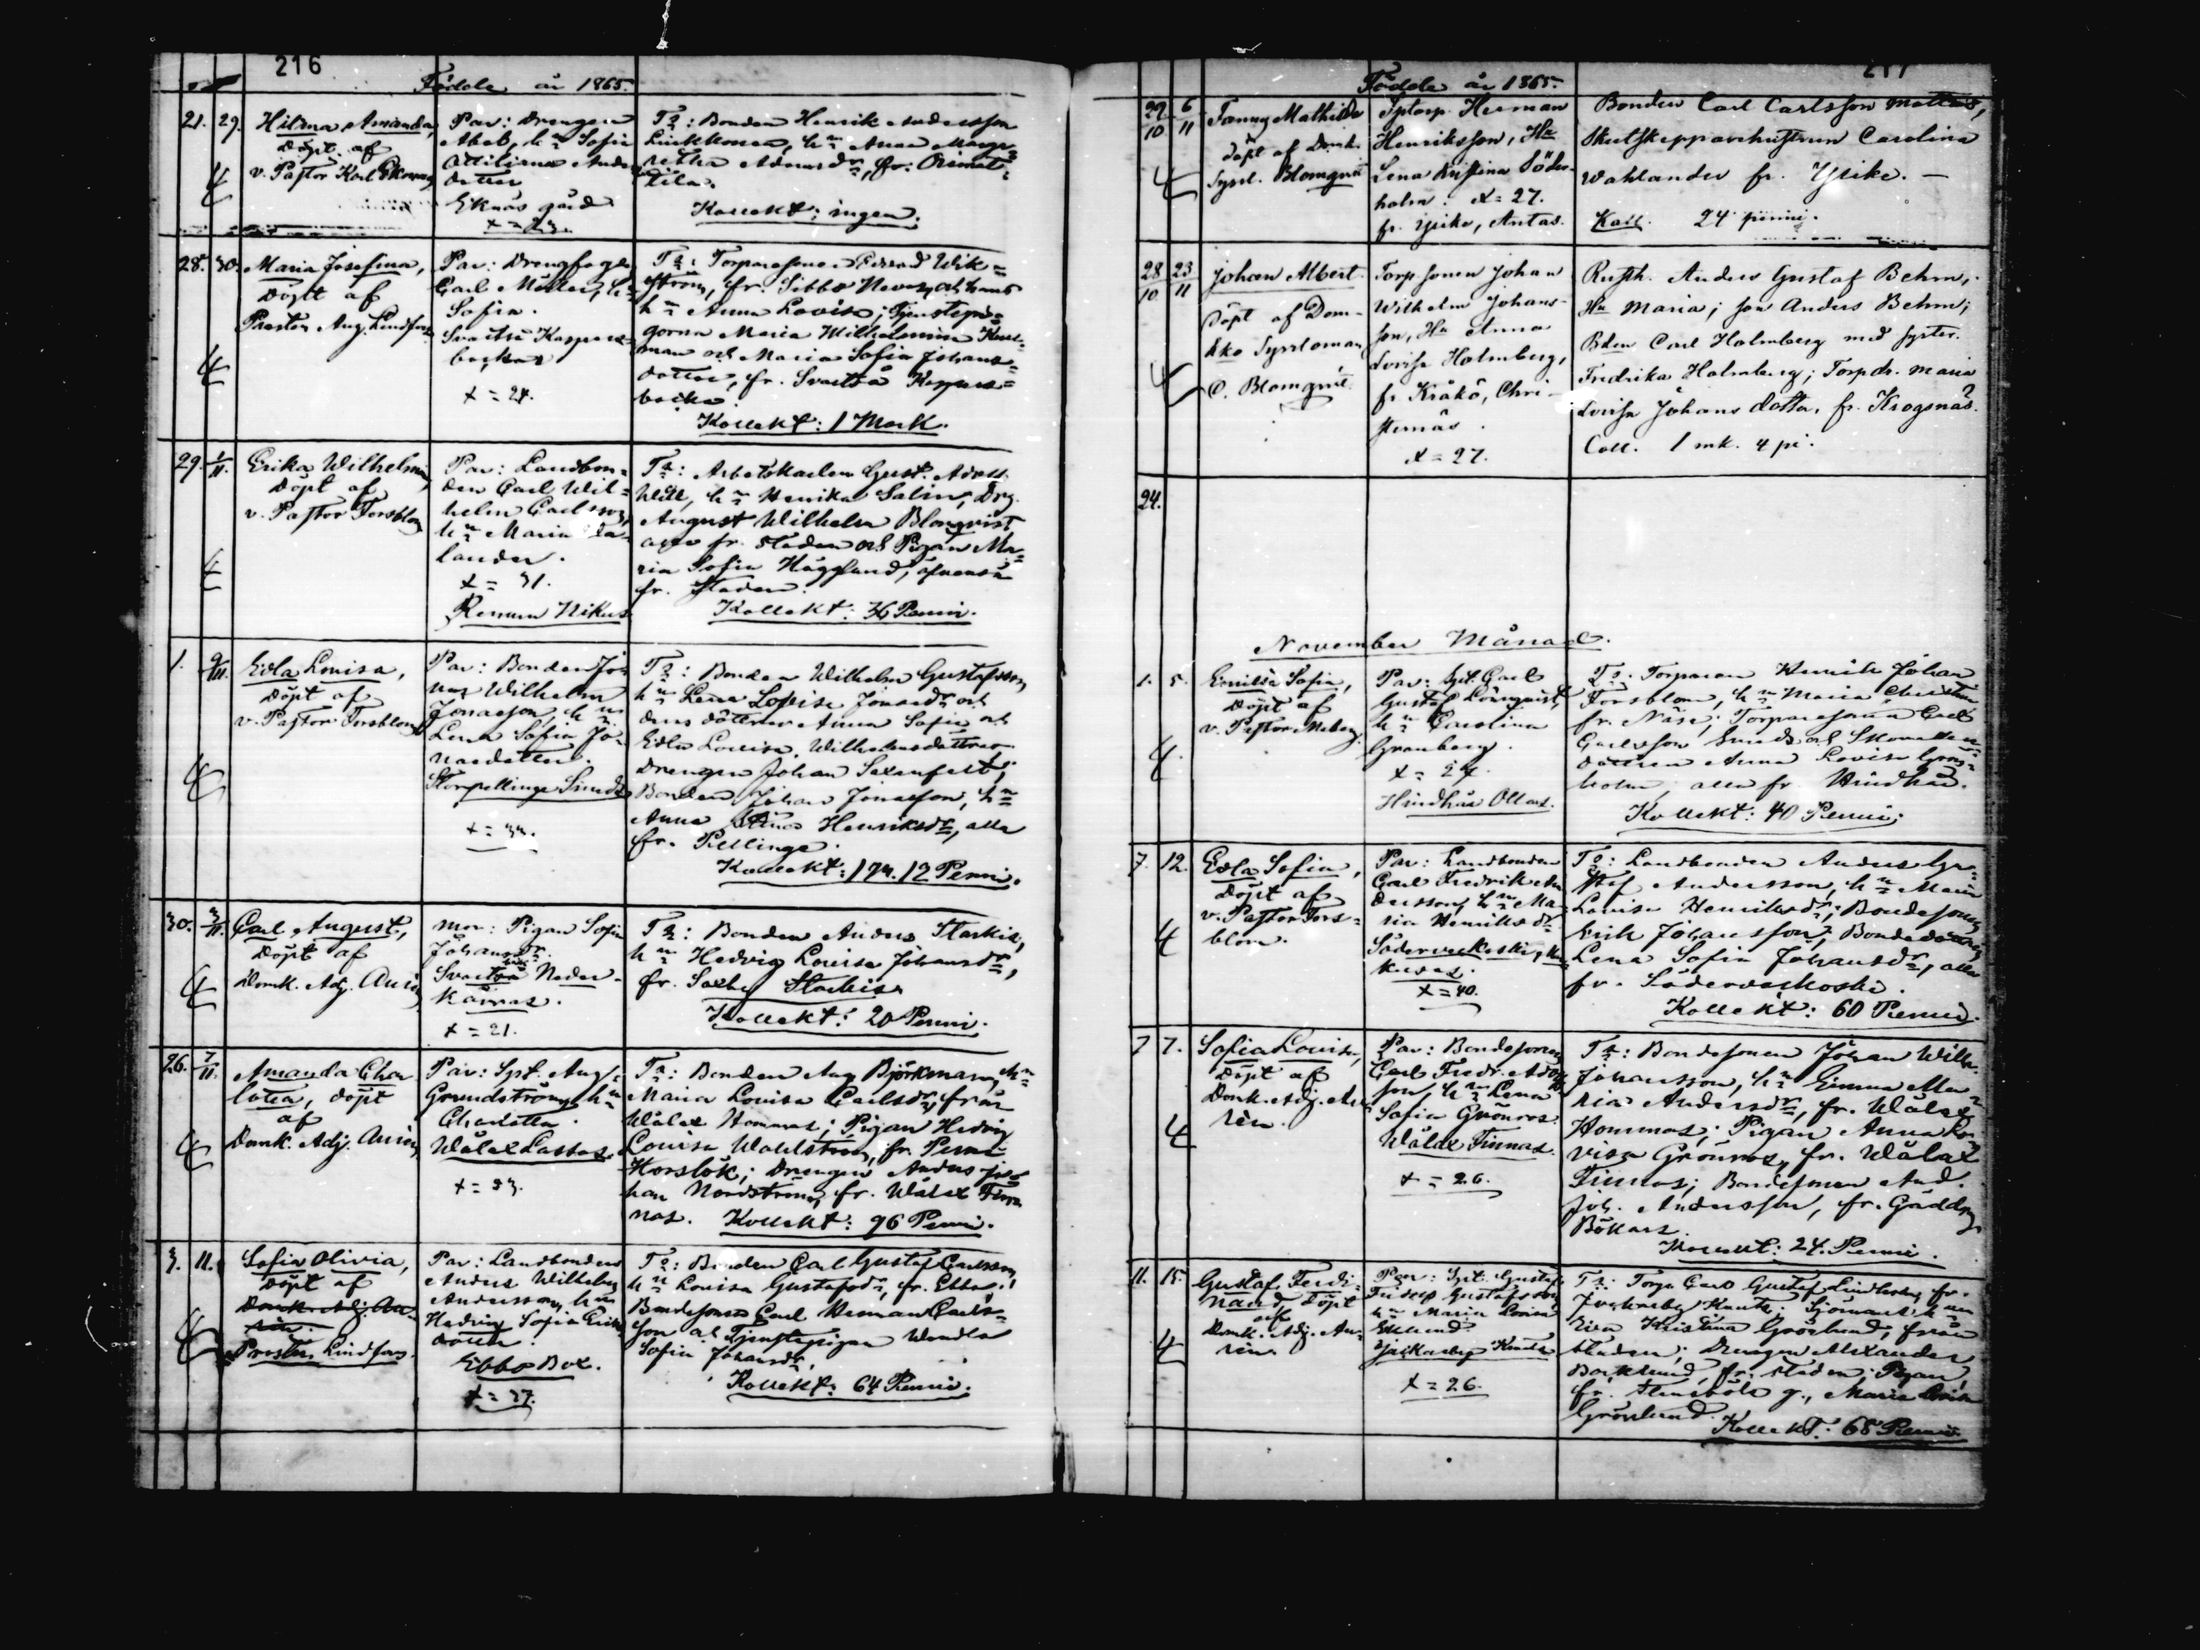 216
Födde år 1865.
21. 29. Hilma Amanda,
Döpt af
v. Pastor Karl
Par: Drengen
Abel, hn Sofia
Anders
dotter
Eknäs gård
Tr: Bonden Henrik Andersson
hn Anna Marga
retha Adamsdr, fr.
Kollekt: ingen.
28. 30. Maria Josefina,
Döpt af
Prosten Aug. Lindfors
Par: Drengfogd.
Carl Möller, hn
Sofia.
Svartså Kaspers
backas
x = 24.
Tr: Torparesonen Wik=
ström, fr. Sibbo och hans
hn Anna Lovisa; Tjenstepi=
gorna Maria Wilhelmina
man och Maria Sofia Johans=
dotter, fr. Svartså Kaspers=
backa.
Kollekt: 1 Mark.
29. 1/11. Erika Wilhelmina,
Döpt af
v. Pastor Forsblom
Par: Landbon=
den Carl Wil=
helm Carlsson,
hn Maria
lander.
x = 31.
Nikus
Tr: Arbetskarlen Gust. Adolf
hn Henrika Salin, Drg.
August Wilhelm Blomqvist
fr. staden och Pigan Ma=
ria Sofia Hägglund,
fr. staden.
Kollekt: 36 Penni.
1. 9/11. Edla Lovisa,
Döpt af
v. Pastor Forsblom
Par: Bonden Jo=
nas Wilhelm
Jonasson, hn
Lena Sofia Jo=
nasdotter.
Storpellinge Sunds
Tr: Bonden Wilhelm Gustafsson,
hn Lena Lovisa Jonasdr och
dess döttrar Anna Sofia och
Edla Lovisa Wilhelmsdöttrar
Drengen Johan
Bonden Johan Jonasson, hn
Anna Stina Henriksdr, alla
fr. Pellinge.
Kollekt: 1 m. 12 Penni.
30. 3/11. Carl August,
Döpt af
Domk. Adj. Aurén
Mor: Pigan Sofia
Johansdr.
Svartså Neder-
kärnas.
x = 21.
Tr: Bonden Anders Starkis,
hn Hedvig Lovisa Johansdr,
fr. Saxby Starkis.
Kollekt: 20 Penni.
26. 7/11. Amanda Char
lotta, döpt
af
Domk. Adj. Aurén
Par: Spt. Aug.
Grundström, hn
Charlotta.
Wålax Lassas.
Tr: Bonden Aug. Björkman, hn
Maria Lovisa Carlsdr, från
Wålax Hommas; Pigan Hedvig
Lovisa Wahlström, fr. Perno
Horslök; Drengen Anders Jo
han Nordström, fr. Wålax Finn
nas. Kollekt: 96 Penni.
3. 11. Sofia Olivia,
Döpt af
Domk. Adj. Au-
rén.
Prosten Lindfors.
Par: Landbonden
Anders Wilhelm
Andersson, hn
Hedvig Sofia Eriks
dotter.
Ebbo Box.
x = 37.
Tr: Bonden Carl Gustaf Carlsson,
hn Lovisa Gustafsdr, fr. Ebbo;
Bondesonen Carl Herman Carls=
son och Tjenstepigan Wendla
Sofia Johansdr.
Kollekt: 64 Penni.
Födde år 1865.
29/10 6/11 Fanny Mathilda
döpt af Domk.
Sysl. Blomqvist
Sptorp. Herman
Henriksson, Hu
Lena Kristina Söder-
holm. x = 27.
fr. Ysike, Antas.
Bonden Carl Carlsson Mattas,
Skutskepparehustrun Carolina
Wahlander fr. Ysike. —
Koll. 24 penni.
28/10 23/11 Johan Albert.
Döpt af Dom-
kko Syssloman
C. Blomqvist.
Torp. sonen Johan
Wilhelm Johans-
son, Hu Anna
Lovisa Holmberg,
fr. Kråkö, Chri-
sternäs.
x = 27.
Rusth. Anders Gustaf Behm,
Hu Maria; son Anders Behm;
Bden Carl Holmberg med syster
Fredrika Holmberg; Torpdr. Maria
Lovisa Johans dotter, fr. Krogsnäs.
Coll. 1 mk. 4 pi.
24.
November Månad.
1. 5. Emilia Sofia,
Döpt af
v. Pastor Moberg.
Par: Spt. Carl
Gustaf Lönnqvist,
hn Carolina
Granberg.
x = 24.
Hindhår Ollas.
Tr: Torparen Henrik Johan
Forsblom, hn Maria Christina
fr. Näse; Torparesonen Carl
Carlsson Sund och
dottren Anna Lovisa Grön=
holm, alla fr. Hindhår.
Kollekt: 40 Penni.
7. 12. Edla Sofia,
Döpt af
v. Pastor Fors=
blom.
Par: Landbonden
Carl Fredrik An
dersson, hn Ma=
ria Henriksdr.
Söderveckoski,
x = 40.
Tr: Landbonden Anders Gu=
staf Andersson, hn Maria
Lovisa Henriksdr; Bondesonen
Erik Johansson, Bondedottren
Lena Sofia Johansdr, alla
fr. Söderveckoski.
Kollekt: 60 Penni.
7 7. Sofia Lovisa,
Döpt af
Domk. Adj. Au
rén.
Par: Bondesonen
Carl Fredr. Adolfs
son, hn Lena
Sofia Grönroos.
Wålax Finnas.
x = 26.
Tr: Bondesonen Johan Wilh.
Johansson, hn Emma Ma
ria Andersdr, fr. Wålax
Hommas; Pigan Anna Lo
visa Grönroos, fr. Wålax
Finnas; Bondesonen And.
Joh. Andersson, fr. Gäddrag
Bökars.
Kollekt: 24. Penni.
11. 15. Gustaf Ferdi=
nand, Döpt
af
Domk. Adj. Au-
rén.
Par: Spt. Gustaf
Fridolf Gustafsson,
hn Maria Lovisa
Eklund.
Jackarby Knuts
x = 26.
Tr: Torp. Carl Gustaf Lindberg, fr.
Jackarby Knuts; Sjömans hn
Kristina Grönlund, från
staden; Drengen Alexander
Backlund, fr. staden; Pigan,
fr. g., Maria Lovisa
Grönlund.
Kollekt: 68 Penni.